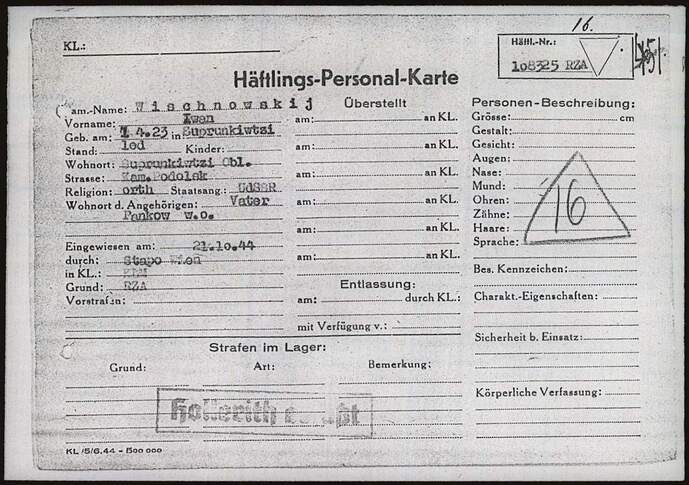 16.
KL.:
Häftl.-Nr.:
108325 RZA
Häftlings-Personal-Karte
Fam.-Name: Wischnowskij
Vorname: Iwan
Geb. am: 1.4.23 in Suprunkiwtzi
Stand: led Kinder:
Wohnort: Suprunkiwtzi Obl.
Strasse: Kam.Podolsk
Religion: orth Staatsang.: UdSSR
Wohnort d. Angehörigen: Vater
Pankow w.o.
Eingewiesen am: 21.10.44
durch: Stapo Wien
in KL.: KLM
Grund: RZA
Vorstrafen:
Überstellt
am: an KL.
am: an KL.
am: an KL.
am: an KL.
am: an KL.
am: an KL.
Entlassung:
am: durch KL.:
mit Verfügung v.:
Personen-Beschreibung:
Grösse: cm
Gestalt:
Gesicht:
Augen:
Nase:
Mund:
Ohren:
Zähne:
Haare:
Sprache:
16
Bes. Kennzeichen:
Charakt.-Eigenschaften:
Sicherheit b. Einsatz:
Körperliche Verfassung:
Strafen im Lager:
Grund: Art: Bemerkung:
Hollerith erfaßt
KL /5/6.44 – 500 000